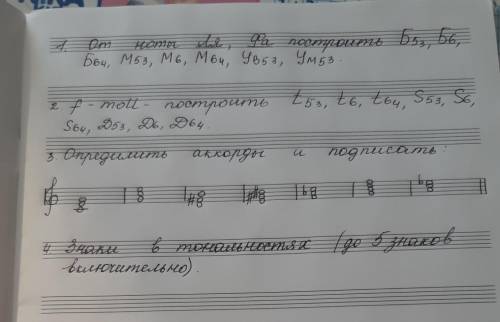 1. От ноты Ля, Фа построить Б53, Б6,
Б64, М53, М6, М64, Ув53, Ум53.
2. f-moll- построить t53, t6, t64, S53, S6,
S64, Д53, Д6, Д64.
3. Определить аккорды и подписать:
4. Знаки в тональностях (до 5 знаков
включительно).